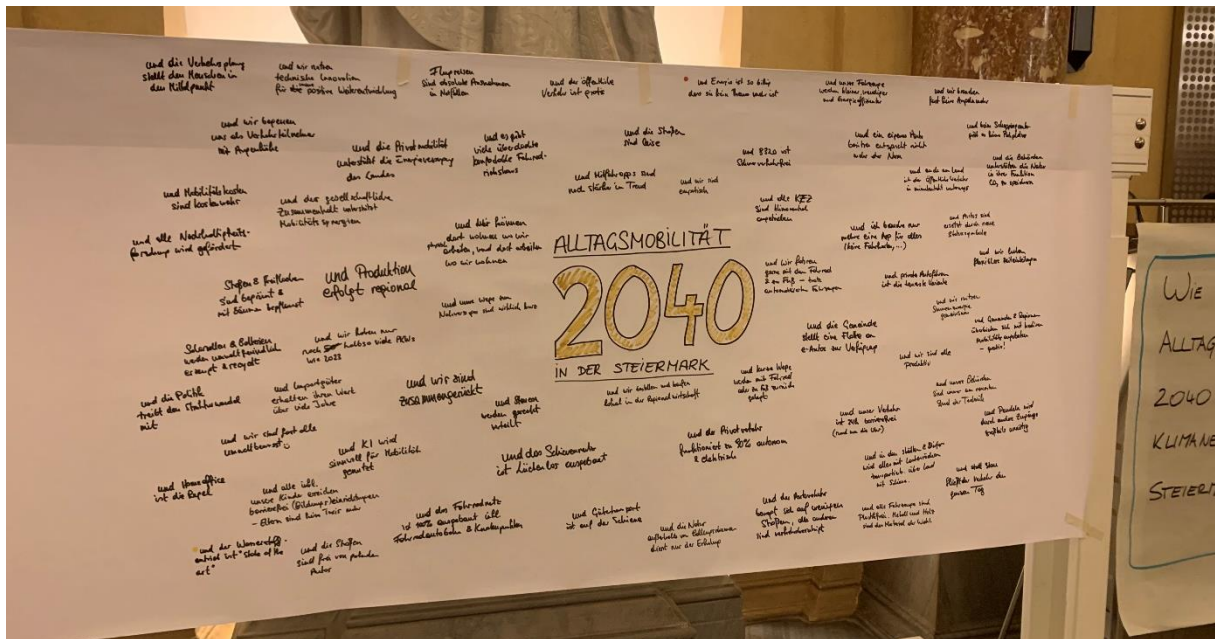 und die Verkehrsplanung
stellt den Menschen in
den Mittelpunkt
und wir nutzen
technische Innovation
für die positive Weiterentwicklung
Flugreisen
sind absolute Ausnahmen
in Notfällen
und der öffentliche
Verkehr ist gratis
und Energie ist so billig
dass sie kein Thema mehr ist
und unsere Fahrzeuge
werden kleiner
und Energieeffizienter
und wir brauchen
fast keine Ampeln mehr
und wir begegnen
uns als Verkehrsteilnehmer
mit Augenhöhe
und die Privatmobilität
unterstützt die Energieversorgung
des Landes
und es gibt
viele überdachte
komfortable Fahrrad-
und die Straßen
sind leise
und B320 ist
Schwerverkehrfrei
und ein eigenes Auto
besitzen entspricht nicht
mehr der Norm
und die Behörden
unterstützen die Natur
in ihrer Funktion
CO2 zu speichern
und Mobilitätskosten
sind Kostenwahr
und der gesellschaftliche
Zusammenhalt unterstützt
Mobilitätssynergien
und Mitfahrapps sind
noch stärker im Trend
und wir sind
empathisch
und alle KFZ
sind klimaneutral
angetrieben
und auch am Land
ist der öffentliche Verkehr
und alle Nachhaltigkeits-
forschung wird gefördert
und wir können
dort wohnen wo wir
arbeiten, und dort arbeiten
wo wir wohnen
ALLTAGSMOBILITÄT
2040
IN DER STEIERMARK
und ich brauche nur
mehr eine App für alles
(keine Fahrkarten, ...)
und Autos sind
ersetzt durch neue
Statussymbole
Straßen & Freiflächen
sind begrünt &
mit Bäumen bepflanzt
und Produktion
erfolgt regional
und unsere Wege zum
Nahversorger sind wirklich kurz
und wir fahren
gerne mit dem Fahrrad
& zu Fuß – trotz
automatischen Fahrzeugen
und private Autofahren
ist die teuerste Variante
und wir haben
Schnellen & Batterien
werden umweltfreundlich
erzeugt & recycelt
und wir haben nur
noch halb so viele PKWs
wie 2023
und die Gemeinde
stellt eine Flotte an
e-Autos zur Verfügung
und wir nutzen
Sonnenenergie
gemeinsam
und Gemeinden & Regionen
überbieten sich mit besseren
Mobilitätsangeboten
– gratis!
und die Politik
treibt den Strukturwandel
mit
und Importgüter
erhalten ihren Wert
über viele Jahre
und wir sind
zusammengerückt
und Steuern
werden gerecht
verteilt
und wir bestellen und kaufen
lokal in der Regionalwirtschaft
und kurze Wege
werden mit Fahrrad
oder zu Fuß zurück
gelegt
und wir sind alle
Produktiv
und unsere Behörden
sind immer am neuesten
Stand der Technik
und wir sind fast alle
umweltbewusst
und KI wird
sinnvoll für Mobilität
genutzt
und das Schienennetz
ist lückenlos ausgebaut
und der Privatverkehr
funktioniert zu 90% autonom
& elektrisch
und unser Verkehr
ist 24h barrierefrei
(rund um die Uhr)
und Pendeln wird
und Homeoffice
ist die Regel
und alle
unsere Kinder erreichen
barrierefrei (Bildungs)einrichtungen
– Eltern sind kein Taxi mehr
und das Fahrradnetz
ist 100% ausgebaut
Fahrradautobahn & Knotenpunkten
und Gütertransport
ist auf der Schiene
und die Natur
dient nur der Erholung
und der Autoverkehr
bewegt sich auf wenigen
Straßen, die anderen
sind verkehrsberuhigt
und in den Städten & Dörfern
wird alles mit Lastenrädern
transportiert, über Land
mit Schiene
und alle Fahrzeuge sind
Plastikfrei. Metall und Holz
sind das Material der Wahl.
und statt Stau
fließt der Verkehr den
ganzen Tag
und der Wasserstoff-
antrieb ist "State of the
art"
und die Straßen
sind frei von parkenden
Autos
WIE
ALLTAG
2040
KLIMANE
STEIERM